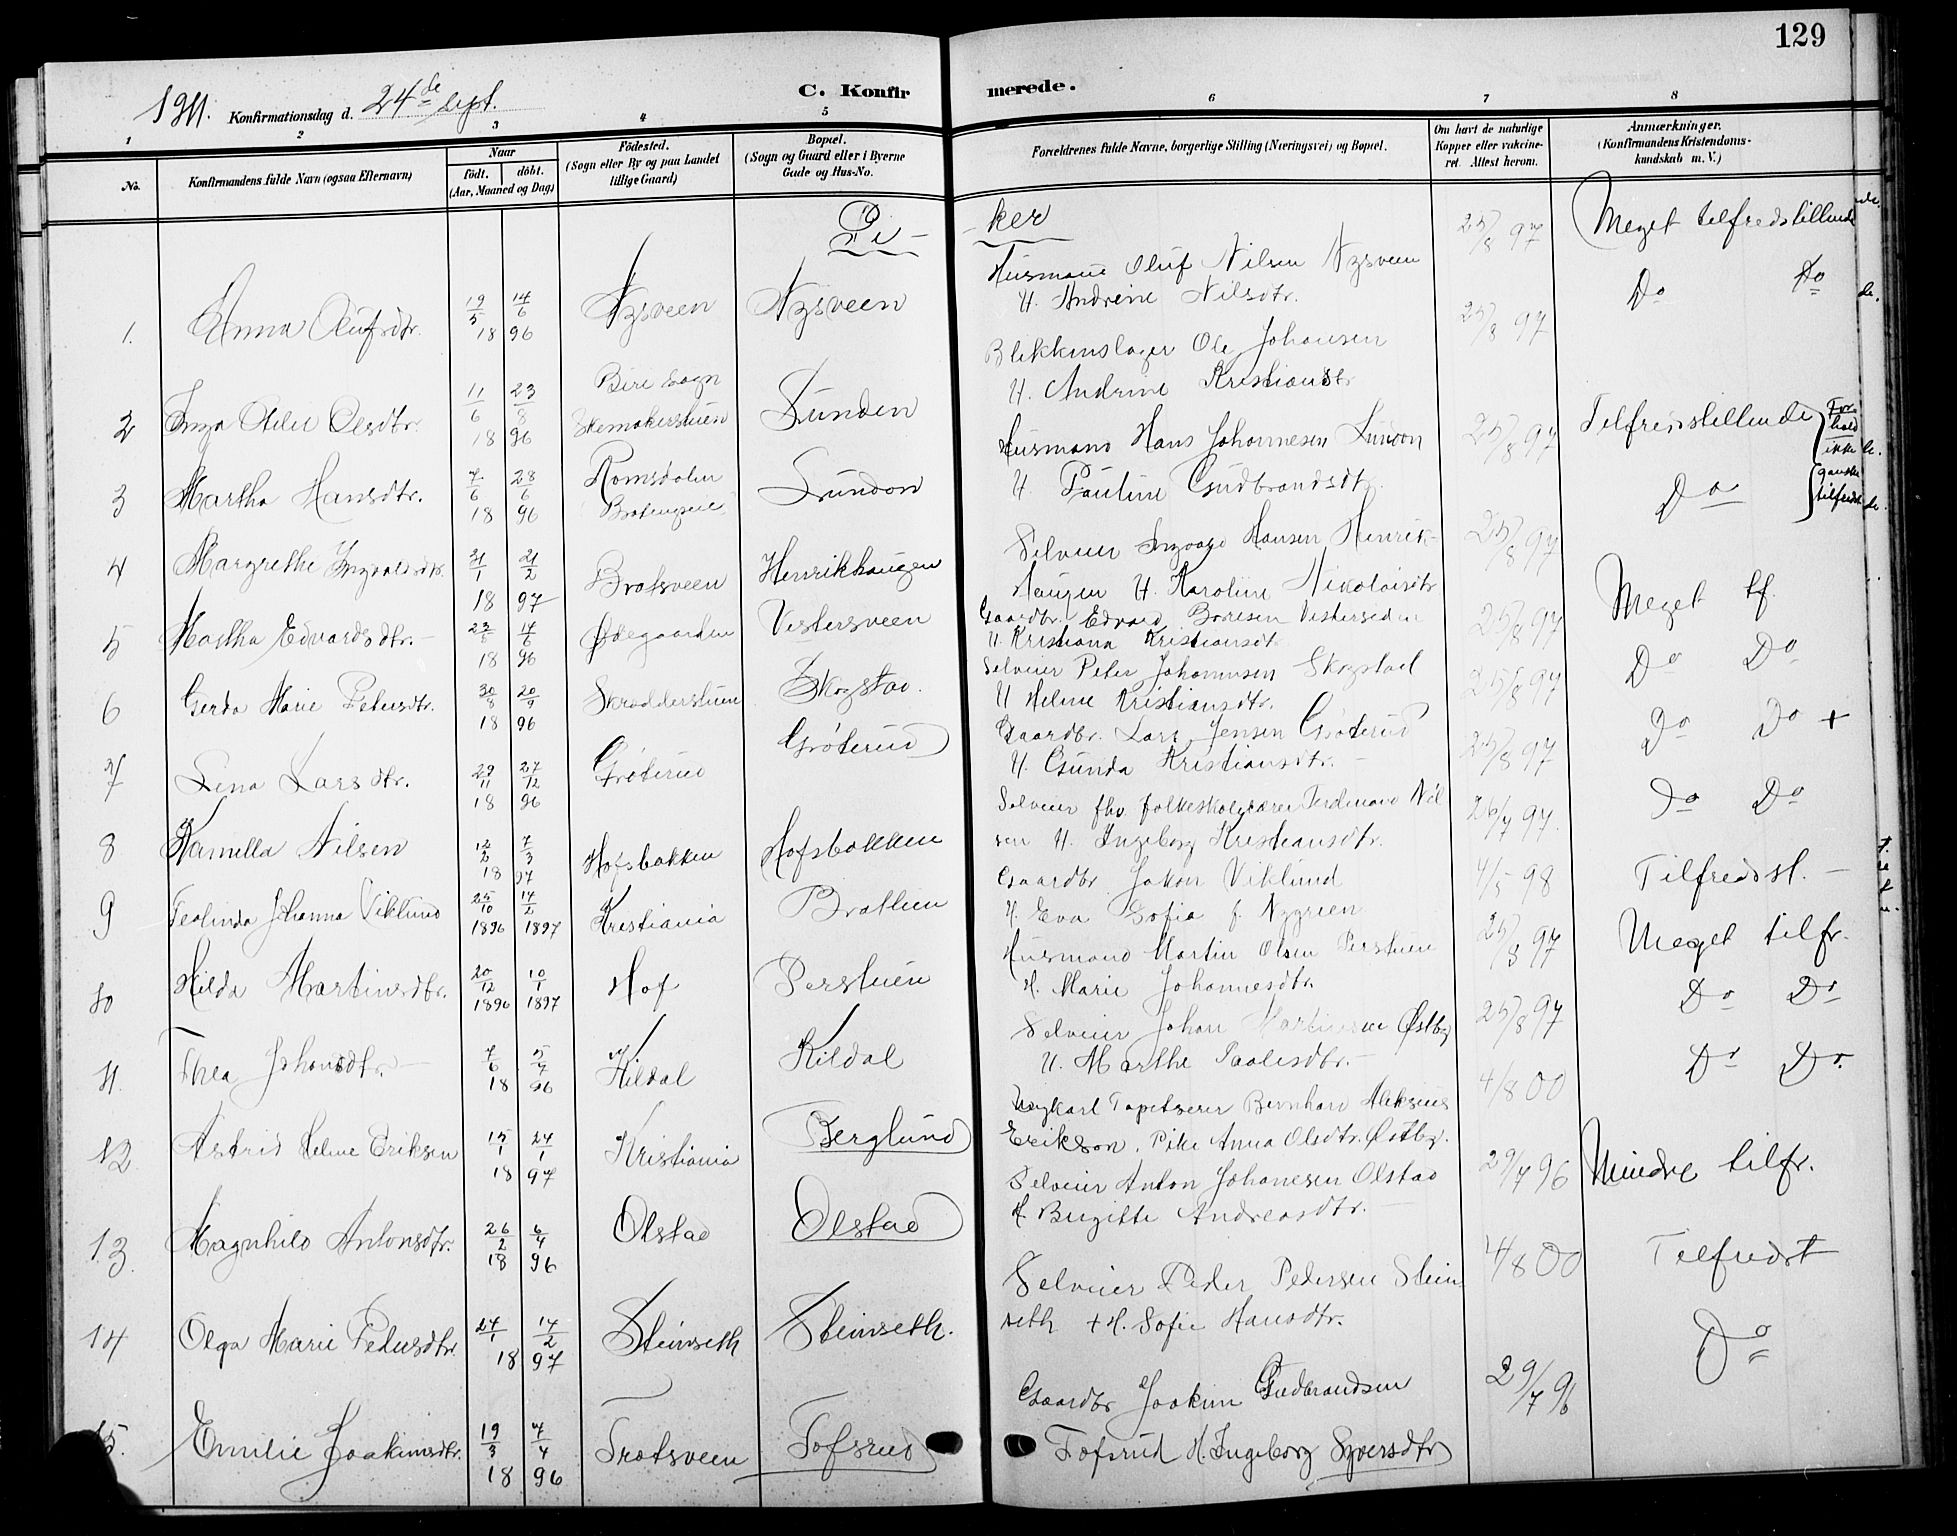 129
1911. Konfirmationsdag d. 24de Sept.
C. Konfirmerede.
1 2 3 4 5 6 7 8
No.
Konfirmandens fulde Navn (ogsaa Efternavn)
Naar
født. døbt.
(Aar, Maaned og Dag)
Fødested.
(Sogn eller By og paa Landet
tillige Gaard)
Bopæl.
(Sogn og Gaard eller i Byerne
Gade og Hus-No.
Forældrenes fulde Navne, borgerlige Stilling (Næringsvei) og Bopæl.
Om havt de naturlige
Kopper eller vaccine-
ret. Attest herom.
Anmærkninger.
(Konfirmandens Kristendoms-
kundskab m. V.)
Pi-ker
1. Anna Olufsdtr. 19/5 14/6 1896 Nysveen Nysveen
Husmand Oluf Nilsen Nysveen
H. Andrine Nilsdtr. 25/8 97 Meget tilfredstillende
2 Inga Olsdtr. 11/6 23/8 1896 Biri Sogn
Skomakerstuen Lunden
Blikkenslager Ole Johansen
H. Andrine Kristiansdtr 25/8 97 Do Do
3 Martha Hansdtr. 7/6 28/6 1896 Romsdalen Lunden
Husmand Hans Johannesen Lunden
H. Pauline Gudbrandsdtr. 25/8 97 Tilfredstillende
Forhold
ikke
ganske
tilfredst
4 Margrethe Ingvaldsdtr. 31/1 21/2 1897 Bratsveen Henrikhaugen
Selveier Ingvald Hansen Henrik-
haugen H. Karoline Nikolaisdtr 25/8 97 Do
5 Martha Edvardsdtr. 23/5 14/6 1896 Ødegaarden Vestersveen
Gaardbr. Edvard Boresen Vestersiden
H. Kristiana Kristiansdt. 25/8 97 Meget tf.
6 Gerda Marie Petersdtr. 30/8 20/9 1896 Skrædderstuen Skogstad.
Selveier Peter Johannesen Skogstad
H Helene Kristiansdtr. 25/8 97 Do Do
7 Lina Larsdtr. 29/11 27/12 1896 Grøterud Grøterud
Gaardbr. Lars Jensen Grøterud
H. Gunda Kristiansdtr. 25/8 97 Do Do +
8 Kamilla Nilsen 12/2 7/3 1897 Hofsbakken Hofsbakken
Selveier fhv. folkeskolelærer Ferdinand Nil
sen H. Ingeborg Kristiansdtr. 26/7 97. Do Do
9 Teolinda Johanna Viklund 25/10 1896 14/2 1897 Kristiania Bratlien
Gaardbr. Jakon Viklund
H. Eva Sofia f. Nygreen 4/5 98 Tilfredsst.
10 Hilda Martinsdtr. 20/12 1896 10/1 1897 Hof Perstuen
Husmand Martin Olsen Perstuen
H. Marie Johannesdtr. 25/8 97 Meget tilfr.
11. Thea Johansdtr. 7/6 5/7 1896 Kildal Kildal
Selveier Johan Martinsen Østby
H. Marthe Paalesdtr. 25/8 97 Do Do
12. Astrid Helene Eriksen 15/1 24/1 1897 Kristiania Berglund
Ungkarl Tapetserer Bernhard Aleksius
Erikson. Pike Anna Olsdtr. Østby. 4/8 00 Do Do
13. Magnhild Antonsdtr. 26/2 6/4 1896 Olstad Olstad
Selveier Anton Johanesen Olstad
H. Birgitte Andreasdtr. 29/7 96 Mindre tilfr.
14 Olga Marie Pedersdtr. 27/1 14/2 1897 Steinseth Steinseth.
Selveier Peder Pedersen Stein
seth + H. Sofie Hansdtr. 4/8 00 Tilfredst
15. Emilie Joakimsdtr. 19/3 7/4 1896 Tratsveen Tofsrud
Gaardbr Joakim Gudbrandsen
Tofsrud H. Ingeborg Syversdtr 29/7 96 Do